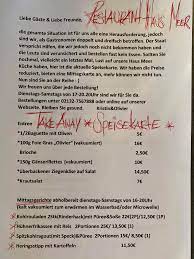 RESTAURANT HANS MEER
Liebe Gäste & Liebe Freunde,
die gesamte Situation ist für uns alle eine Herausforderung, jedoch
sind wir, als Gastronomen doppelt und dreifach betroffen. Der Staat
verspricht Hilfen, die wir jedoch noch nicht bekommen haben und
die Leute sind verunsichert und bestellen fast keine Essen. Sollten
möglich, vielleicht ein letztes Mal, aus unserem Haus Meer
Küche haben. Hier ist die aktuelle Speisekarte. Wir haben die Preise
reduziert, bieten eine Mittagskarte an, mehr können wir nicht tun,
wir brauchen dringend Ihre Mithilfe!
dienstags-Samstags von 17-20.Uhr sind wir für Sie da.
Bestellungen unter 02132-7567788 oder und auf unserer
Webseite. Bleiben Sie gesund. Kristin&Olivier
TAKE AWAY * SPEISEKARTE *
Entrées
*1/2Baguette mit Oliven 5€
*100g Foie Gras „Olivier" (vakuumiert) 16€
Brioche 5,50€
*150g Gänserillettes (vakuumiert) 12€
*überbackener Ziegenkäse auf Salat 14€
*Krautsalat 7€
Mittagsgerichte abholbereit dienstags-Samstags von 16-20Uhr
(kalt zum erwärmen im Wasserbad/oder Microwelle)
*Kohlrouladen 2Stk(Rinderhack)mit Püree&Soße 22€(2P)/12,50€ (1P)
*Hühnerfrikassee mit Reis 2Portionen 25€/ 13,50€(1P)
*Schweinegulasch&Speck&Püree 2Portionen 25€/ 13,50€ (1P)
*Heringsstipp mit Kartoffeln 10,50€